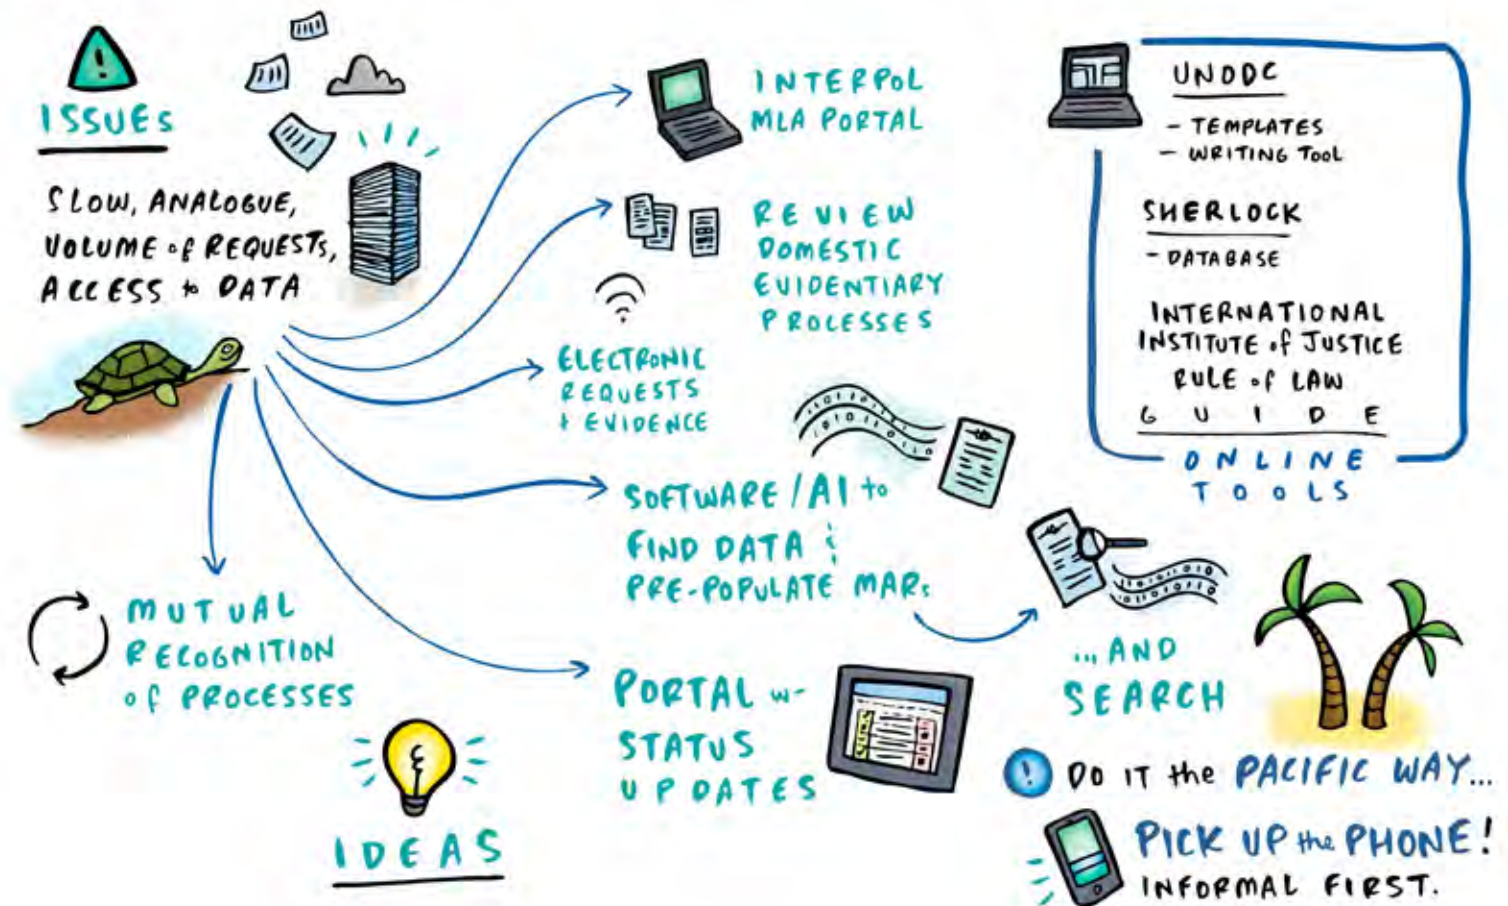 ISSUES
SLOW, ANALOGUE,
VOLUME of REQUESTS,
ACCESS to DATA
INTERPOL
MLA PORTAL
REVIEW
DOMESTIC
EVIDENTIARY
PROCESSES
ELECTRONIC
REQUESTS
+ EVIDENCE
SOFTWARE/AI to
FIND DATA &
PRE-POPULATE MARs
...AND
SEARCH
PORTAL w-
STATUS
UPDATES
MUTUAL
RECOGNITION
of PROCESSES
IDEAS
UNODC
- TEMPLATES
- WRITING TOOL
SHERLOCK
- DATABASE
INTERNATIONAL
INSTITUTE of JUSTICE
RULE of LAW
GUIDE
ONLINE
TOOLS
! DO IT the PACIFIC WAY...
PICK UP the PHONE!
INFORMAL FIRST.